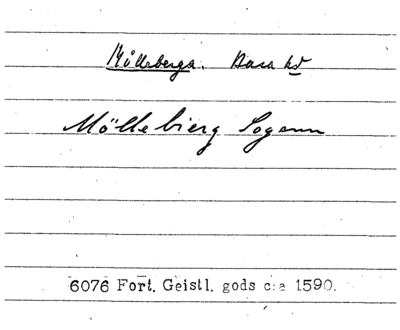 Mölleberga. Bara hd
Möllebierg Sogenn
6076 Fort. Geistl. gods c:a 1590.